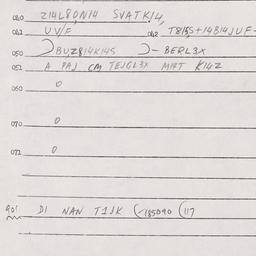 040 214L80N14 SVATK14,
041 UV/F 042 T8135+14B14JUF-
050 BUZ814K14S - BERL3X
051 A PAJ CM TEJGL3X MIRT K14Z
060 0
070 0
071 0
901 DI NAN T1JK (-185090 (117